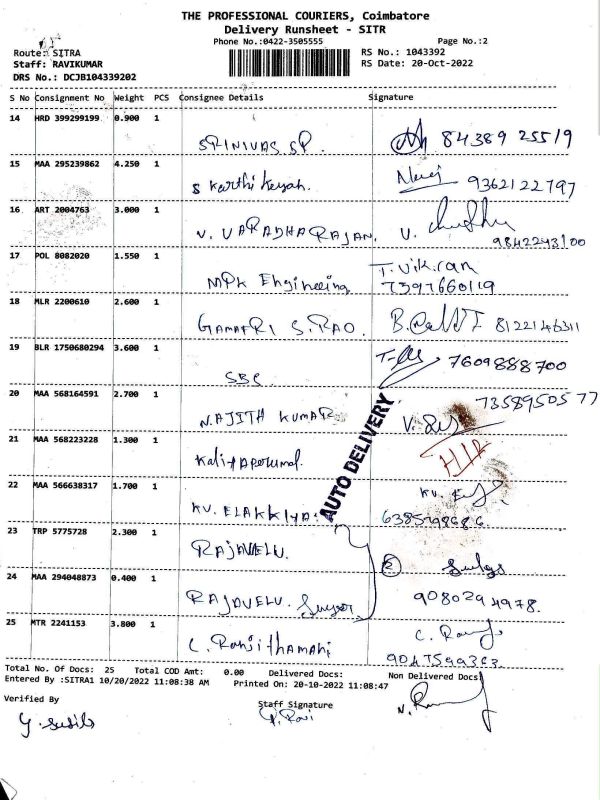 THE PROFESSIONAL COURIERS, Coimbatore
Delivery Runsheet - SITR
Phone No.:0422-3505555 Page No.:2
Route: SITRA RS No.: 1043392
Staff: RAVIKUMAR RS Date: 20-Oct-2022
DRS No.: DCJB104339202
S No Consignment No Weight PCS Consignee Details Signature
14 HRD 399299199 0.900 1
SRINIVAS SP. 84389 25519
15 MAA 295239862 4.250 1
S Karthikeyan. 9362122797
16 ART 2004763 3.000 1
V. VARADHARAJAN. V.
9842243100
17 POL 8082020 1.550 1
MPK Engineering T. Vikram
7397660119
18 MLR 2200610 2.600 1
S. RAO. 8122146311
19 BLR 1750680294 3.600 1
SBC 7609888700
20 MAA 568164591 2.700 1
N. AJITH KUMAR 7358950577
21 MAA 568223228 1.300 1
AUTO DELIVERY
22 MAA 566638317 1.700 1
KV. ELAKKIYA. KV.
23 TRP 5775728 2.300 1
RAJAVELU. 2
24 MAA 294048873 0.400 1
RAJAVELU. 9080294978.
25 MTR 2241153 3.800 1
C. Ranjithamani C.
Total No. Of Docs: 25 Total COD Amt: 0.00 Delivered Docs: Non Delivered Docs:
Entered By :SITRA1 10/20/2022 11:08:38 AM Printed On: 20-10-2022 11:08:47
Verified By Staff Signature